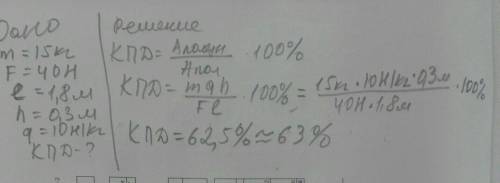 Дано
m = 15кг
F = 40Н
ℓ = 1,8м
h = 0,3м
g = 10Н/кг
КПД - ?
Решение
КПД = Аполезн / Апол · 100%
КПД = mgh / Fℓ · 100% = 15кг · 10Н/кг · 0,3м / 40Н · 1,8м · 100%
КПД = 62,5% ≈ 63%